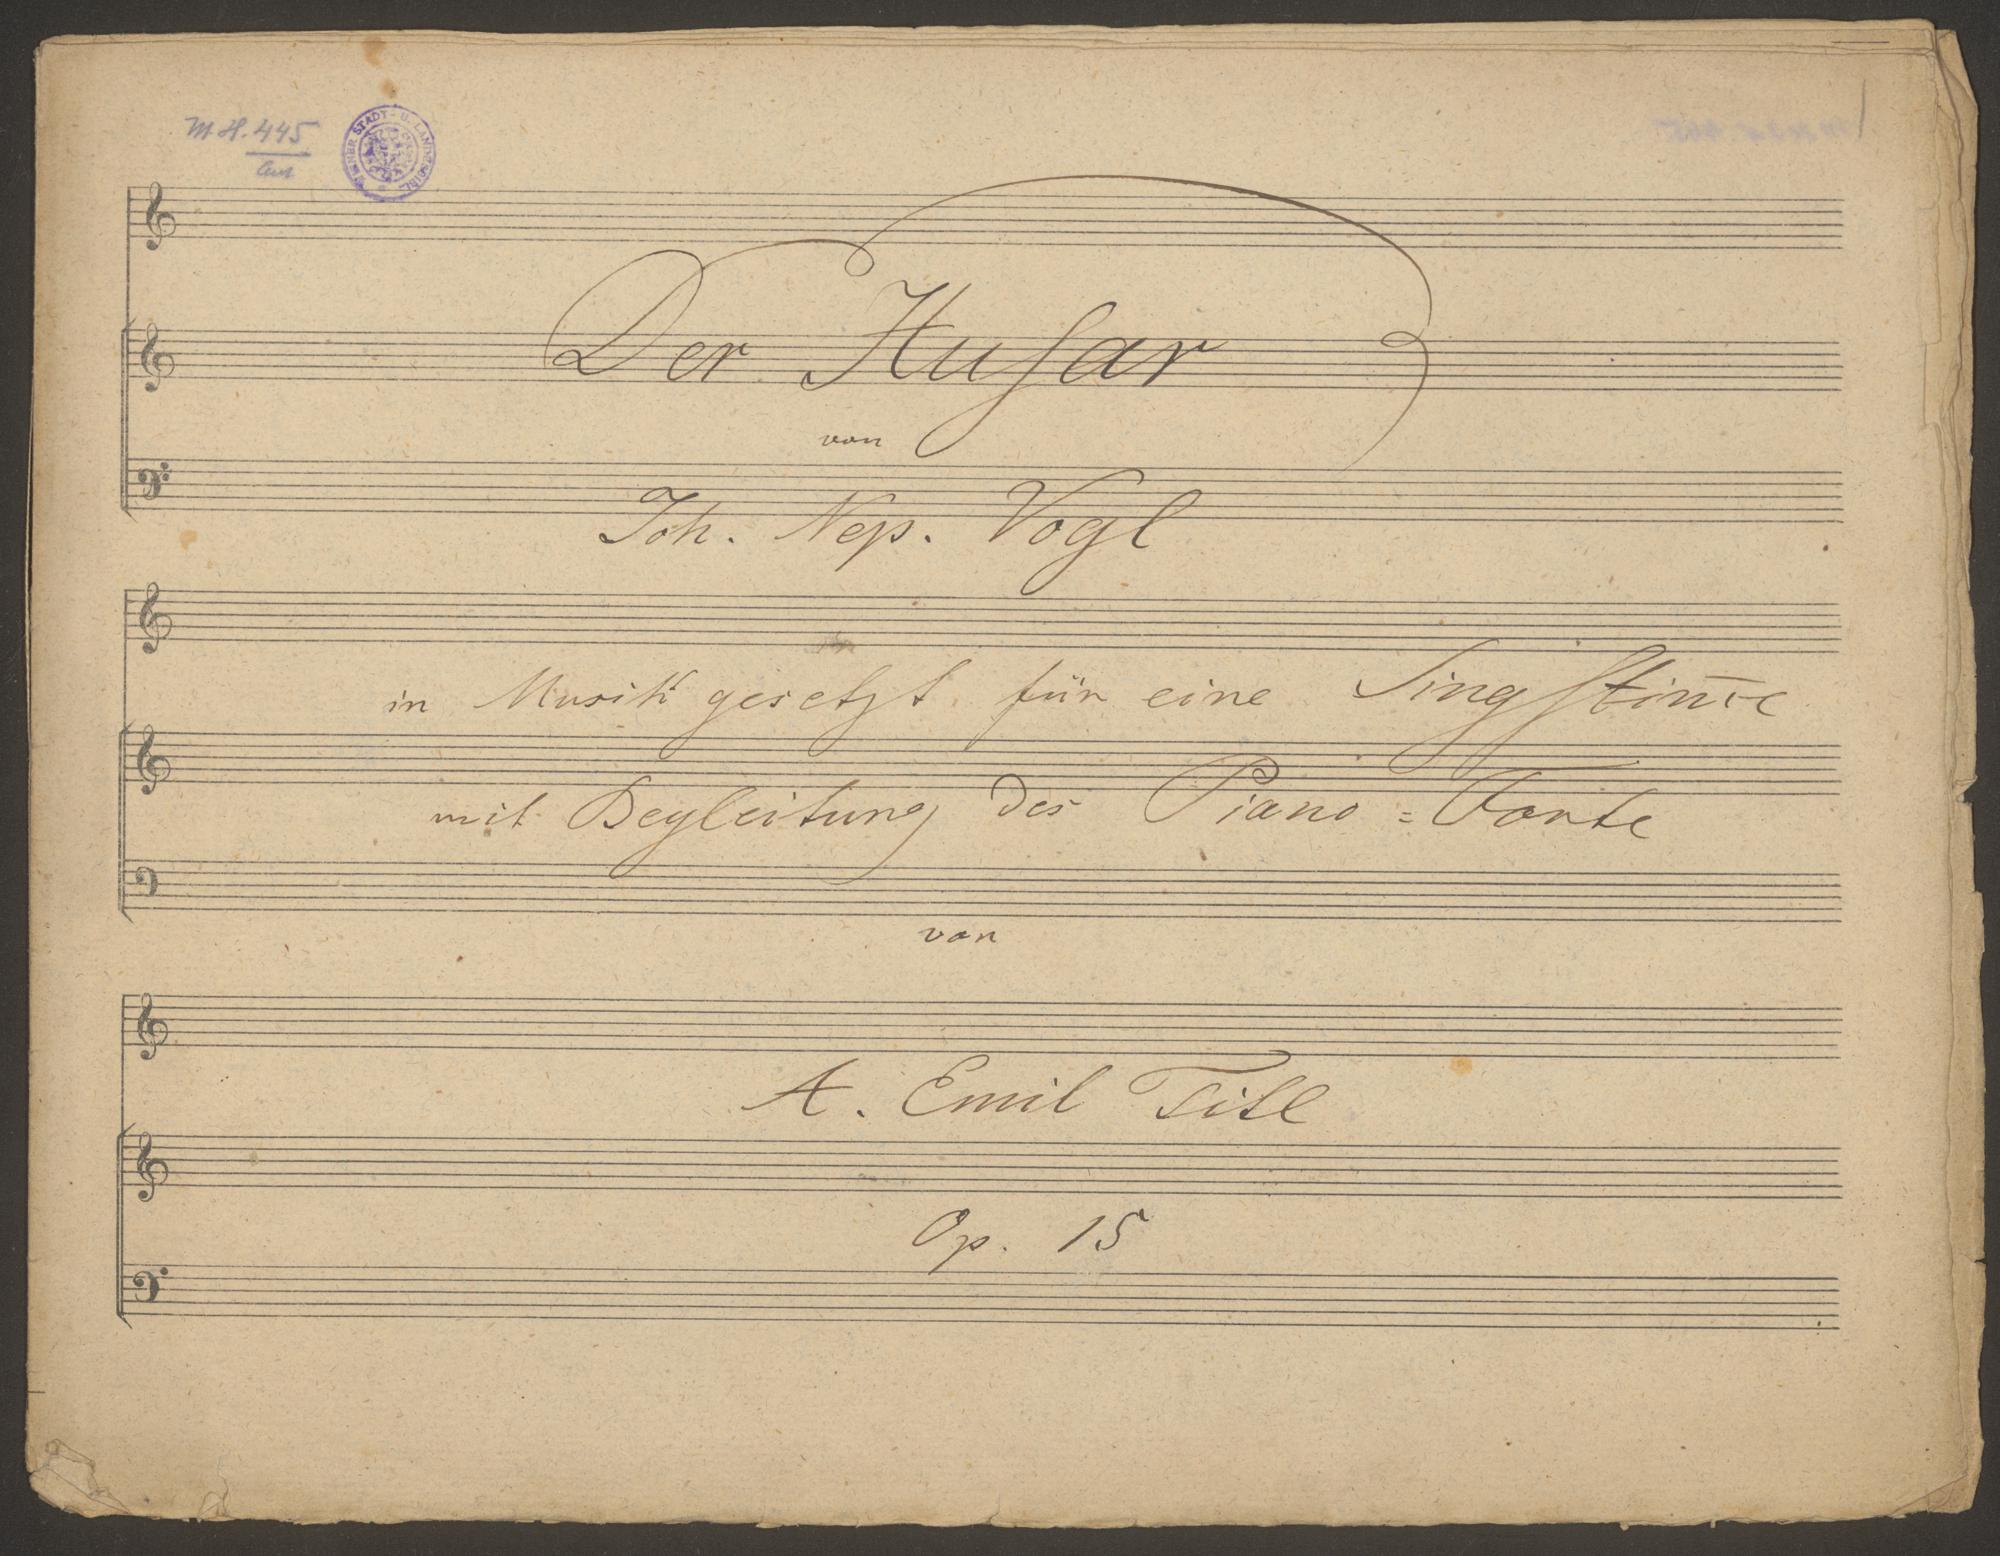 M.H. 445
WIENER STADT- U. LANDESBIBL.
Der Husar
von
Joh. Nep. Vogl
in Musik gesetzt für eine Singstim̅e
mit Begleitung des Piano=Forte
von
A. Emil Titl
Op. 15